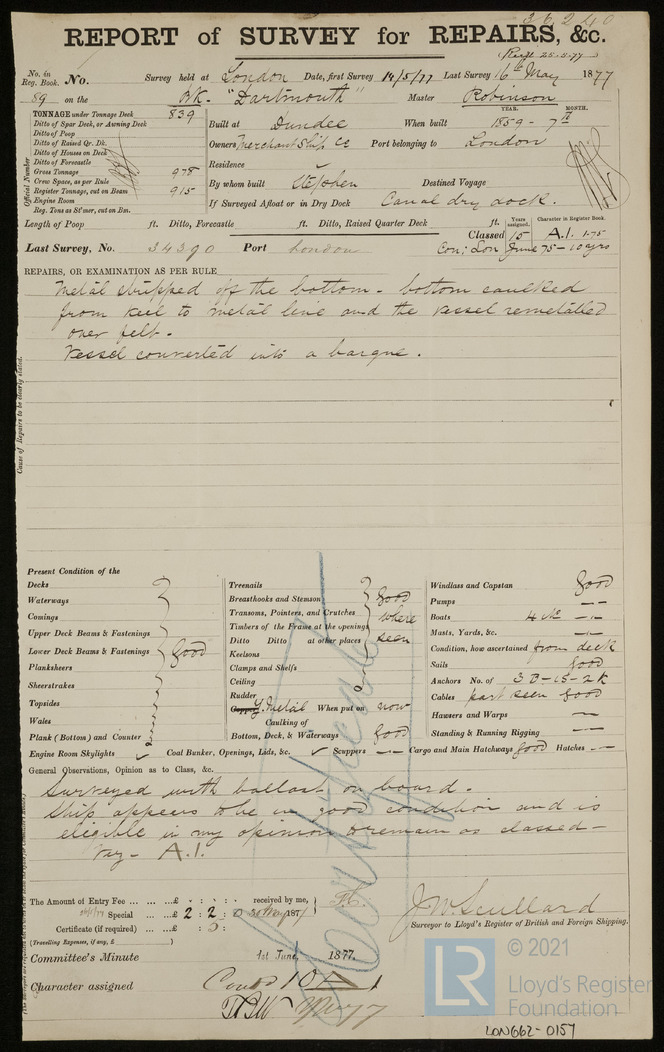 36240
REPORT of SURVEY for REPAIRS, &c.
No. in Reg. Book. No. Survey held at London Date, first Survey 14/5/77 Last Survey 16th May 1877
89 on the "Dartmouth" Master Robinson
TONNAGE under Tonnage Deck 839
Ditto of Spar Deck, or Awning Deck
Ditto of Poop
Ditto of Raised Qr. Dk.
Ditto of Houses on Deck
Ditto of Forecastle
Gross Tonnage 978
Crew Space, as per Rule
Register Tonnage, cut on Beam 915
Engine Room
Reg. Tons as St'mer, cut on Bm.
Official Number
YEAR. MONTH.
Built at Dundee When built 1859 - 7
Owners Merchant Ship Co Port belonging to London
Residence
By whom built Stephen Destined Voyage
If Surveyed Afloat or in Dry Dock Canal dry dock.
Length of Poop ft. Ditto, Forecastle ft. Ditto, Raised Quarter Deck ft.
Years assigned. Character in Register Book.
Classed 15 A.1. 1.75
Last Survey, No. 34390 Port London Con: Lon June 75 - 10 yrs
REPAIRS, OR EXAMINATION AS PER RULE
Metal stripped off the bottom - bottom caulked
from keel to metal line and the vessel remetalled
over felt.
Vessel converted into a barque.
Cause of Repairs to be clearly stated.
Present Condition of the
Decks
Waterways
Comings
Upper Deck Beams & Fastenings
Lower Deck Beams & Fastenings good
Planksheers
Sheerstrakes
Topsides
Wales
Plank (Bottom) and Counter
Treenails
Breasthooks and Stemson good
Transoms, Pointers, and Crutches where
Timbers of the Frame at the openings
Ditto Ditto at other places seen
Keelsons
Clamps and Shelfs
Ceiling
Rudder
Metal When put on now
Caulking of
Bottom, Deck, & Waterways good
Windlass and Capstan good
Pumps
Boats 4
Masts, Yards, &c.
Condition, how ascertained from deck
Sails good
Anchors No. of 3 B - 1 S - 2 K
Cables part seen good
Hawsers and Warps
Standing & Running Rigging
Engine Room Skylights Coal Bunker, Openings, Lids, &c. Scuppers Cargo and Main Hatchways good Hatches
General Observations, Opinion as to Class, &c.
Surveyed with ballast on board.
Ship appears to be in good condition and is
eligible in my opinion to remain as classed -
A.1.
The Amount of Entry Fee £ received by me,
Special £ 2 : 2 : 0 1877
Certificate (if required)
(Travelling Expenses, if any, £ )
J W Scullard
Surveyor to Lloyd's Register of British and Foreign Shipping.
Committee's Minute 1st June, 1877.
Character assigned Contd 10 A 1
LR © 2021
Lloyd's Register
Foundation
LON662-0157